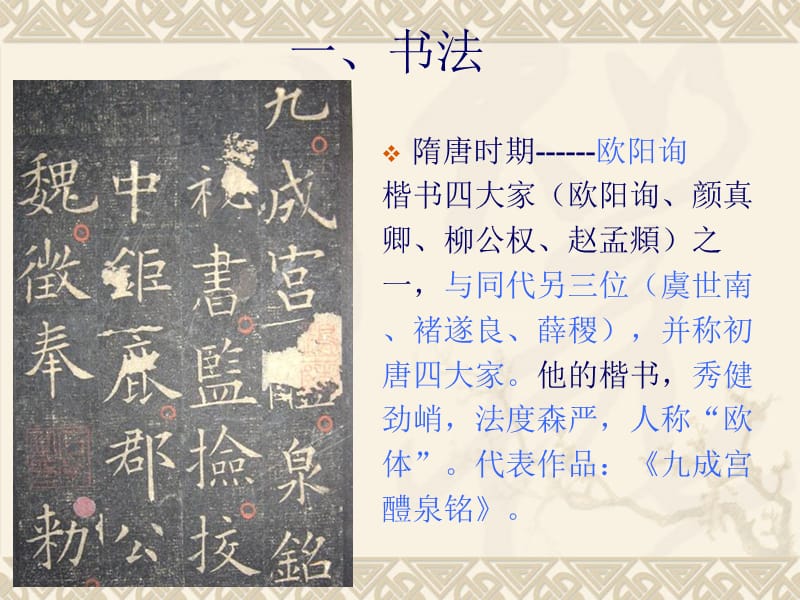 一、书法
九成宮泉銘
祕書監撿挍
中鉅鹿郡公
魏徵奉勅
隋唐时期------欧阳询
楷书四大家（欧阳询、颜真
卿、柳公权、赵孟頫）之
一，与同代另三位（虞世南
、褚遂良、薛稷），并称初
唐四大家。他的楷书，秀健
劲峭，法度森严，人称“欧
体”。代表作品：《九成宫
醴泉铭》。